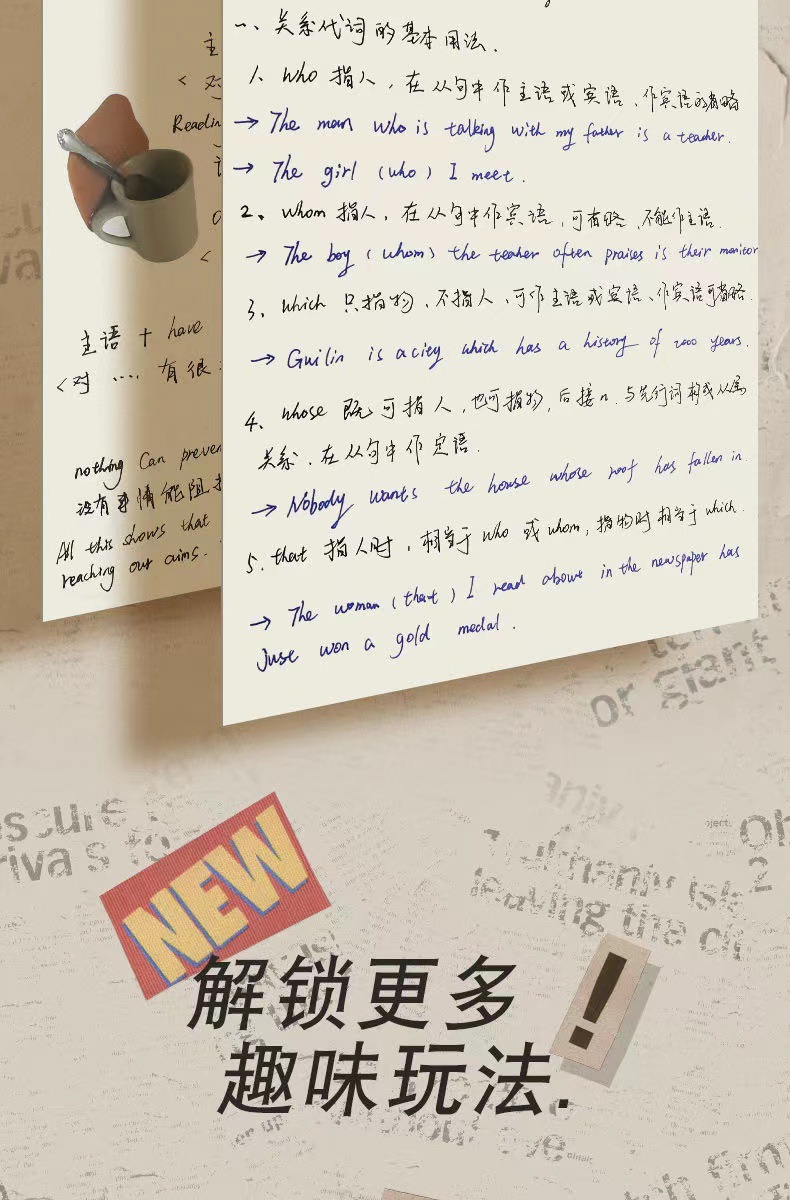 一、关系代词的基本用法.
1. who 指人, 在从句中作主语或宾语、作宾语可省略
→ The man who is talking with my father is a teacher.
→ The girl (who) I meet.
2、whom 指人, 在从句中作宾语, 可省略、不能作主语.
→ The boy (whom) the teacher often praises is their monitor
3、which 只指物、不指人、可作主语或宾语、作宾语可省略.
→ Guilin is a city which has a history of 2000 years.
4、whose 既可指人, 也可指物, 后接n. 与先行词构成从属
关系、在从句中作定语.
→ Nobody wants the house whose roof has fallen in.
5. that 指人时, 相当于who 或 whom, 指物时相当于which.
→ The woman (that) I read about in the newspaper has
Just won a gold medal.
主
Readin
主语 + have
<对 .... 有很
nothing Can preven
没有事情能阻
All this shows that
reaching our aims.
or giant
NEW
解锁更多
趣味玩法.
!
leaving the